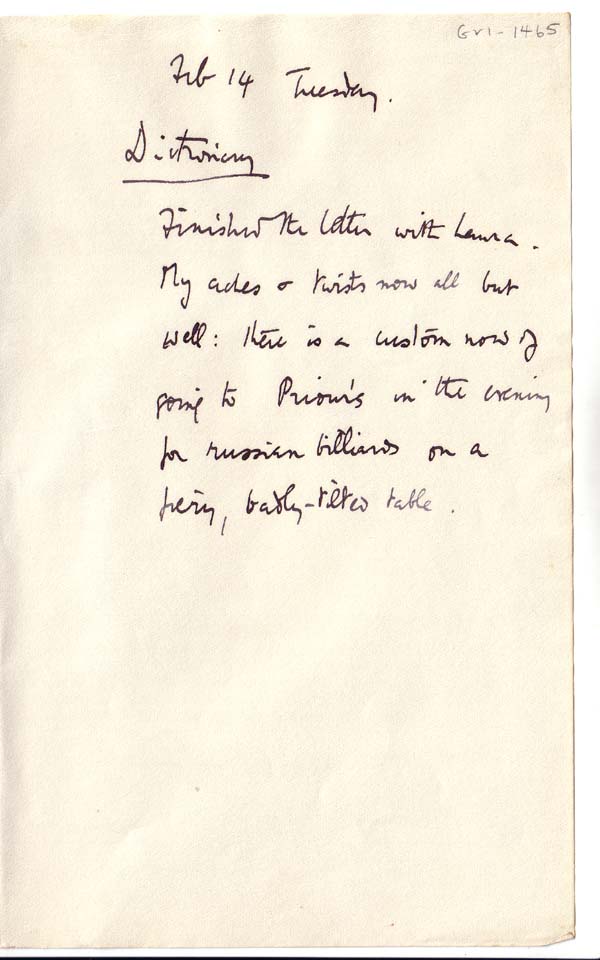 Gr1-1465
Feb 14 Tuesday.
Dictionary
Finished the letter with Laura.
My aches & twists now all but
well: there is a custom now of
going to Prior's in the evening
for russian billiards on a
fiery, badly-tilted table.